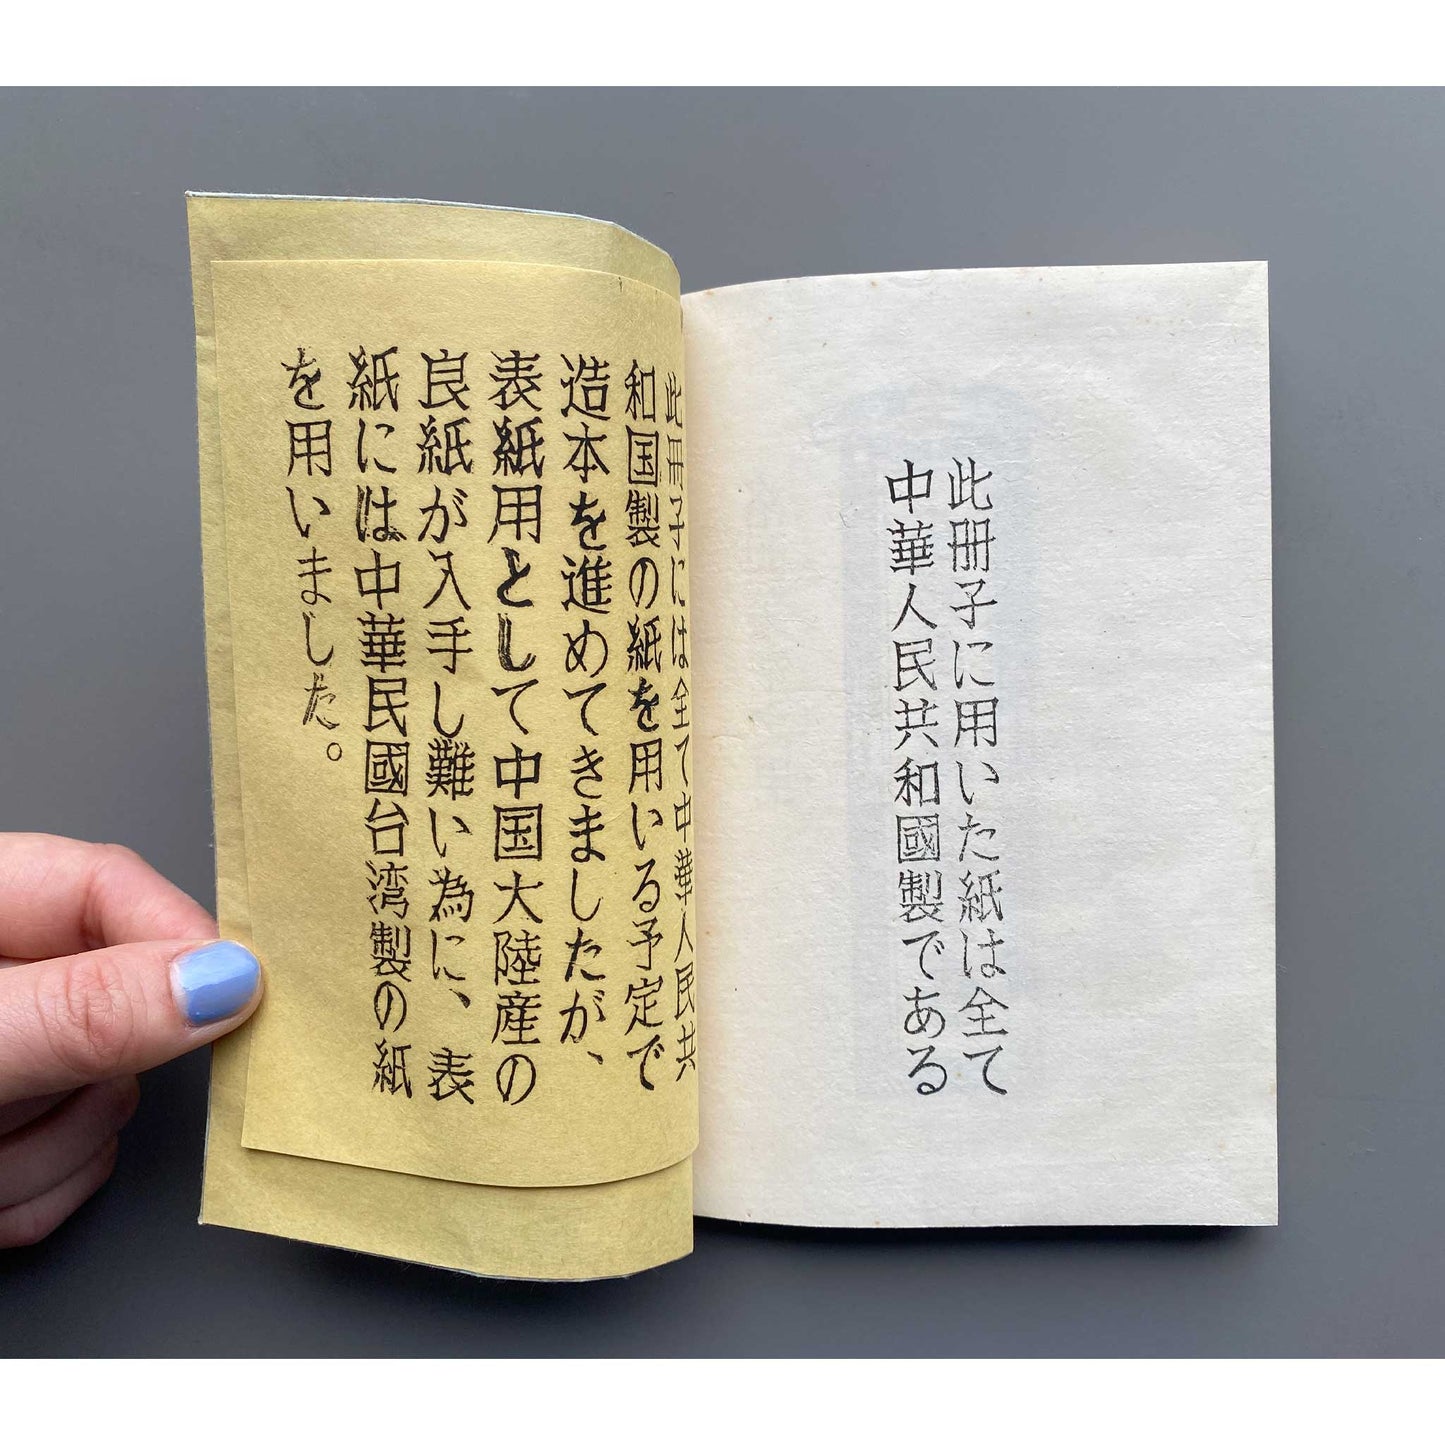 此冊子に用いた紙は全て
中華人民共和國製である
此冊子には全て中華人民共
和国製の紙を用いる予定で
造本を進めてきましたが、
表紙用として中国大陸産の
良紙が入手し難い為に、表
紙には中華民國台湾製の紙
を用いました。